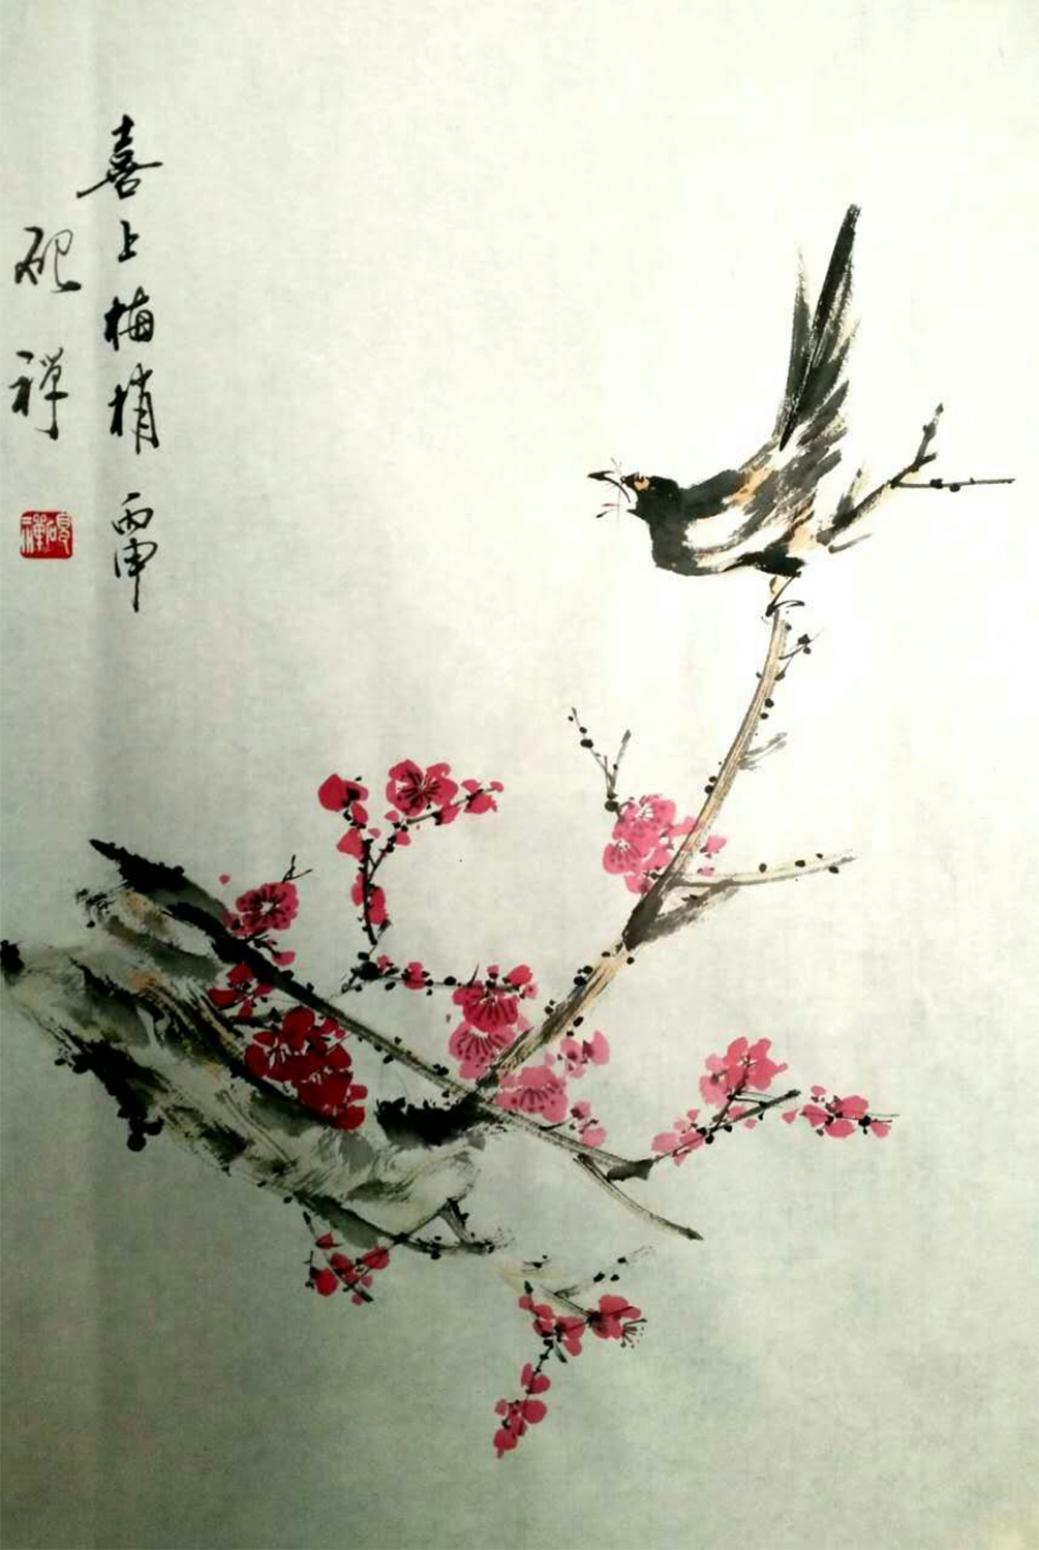 喜上梅梢 丙申
砚禅